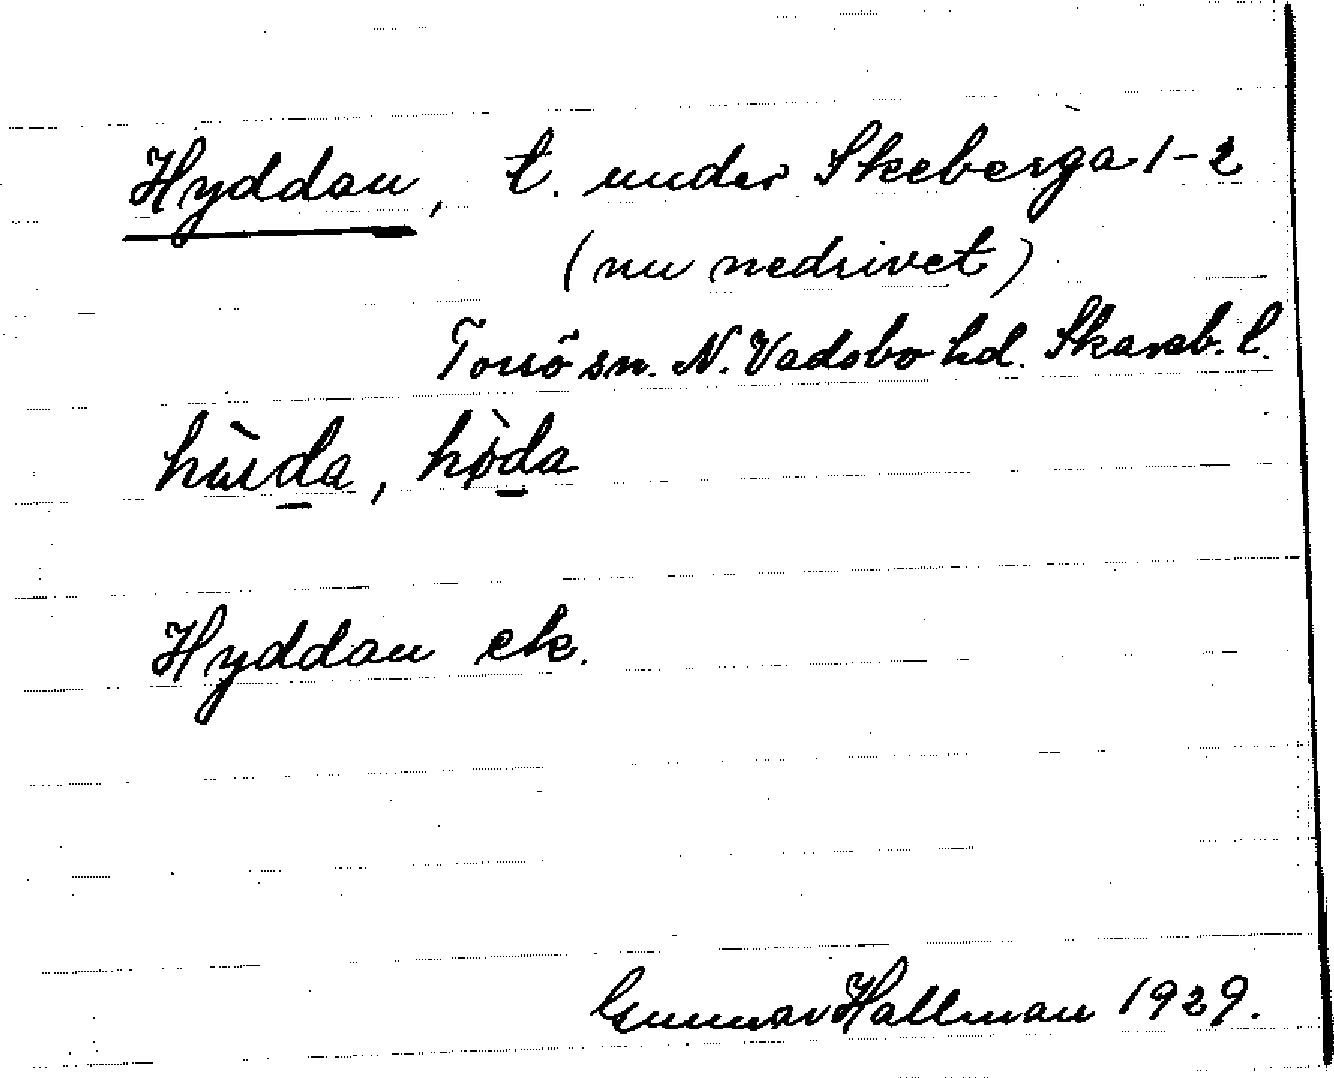 Hyddan, t. under Skeberga 1-2
(nu nedrivet)
Torsö sn. N. Vadsbo hd. Skarab. l.
hø̀da
Hyddan ek.
Gunnar Hallman 1929.